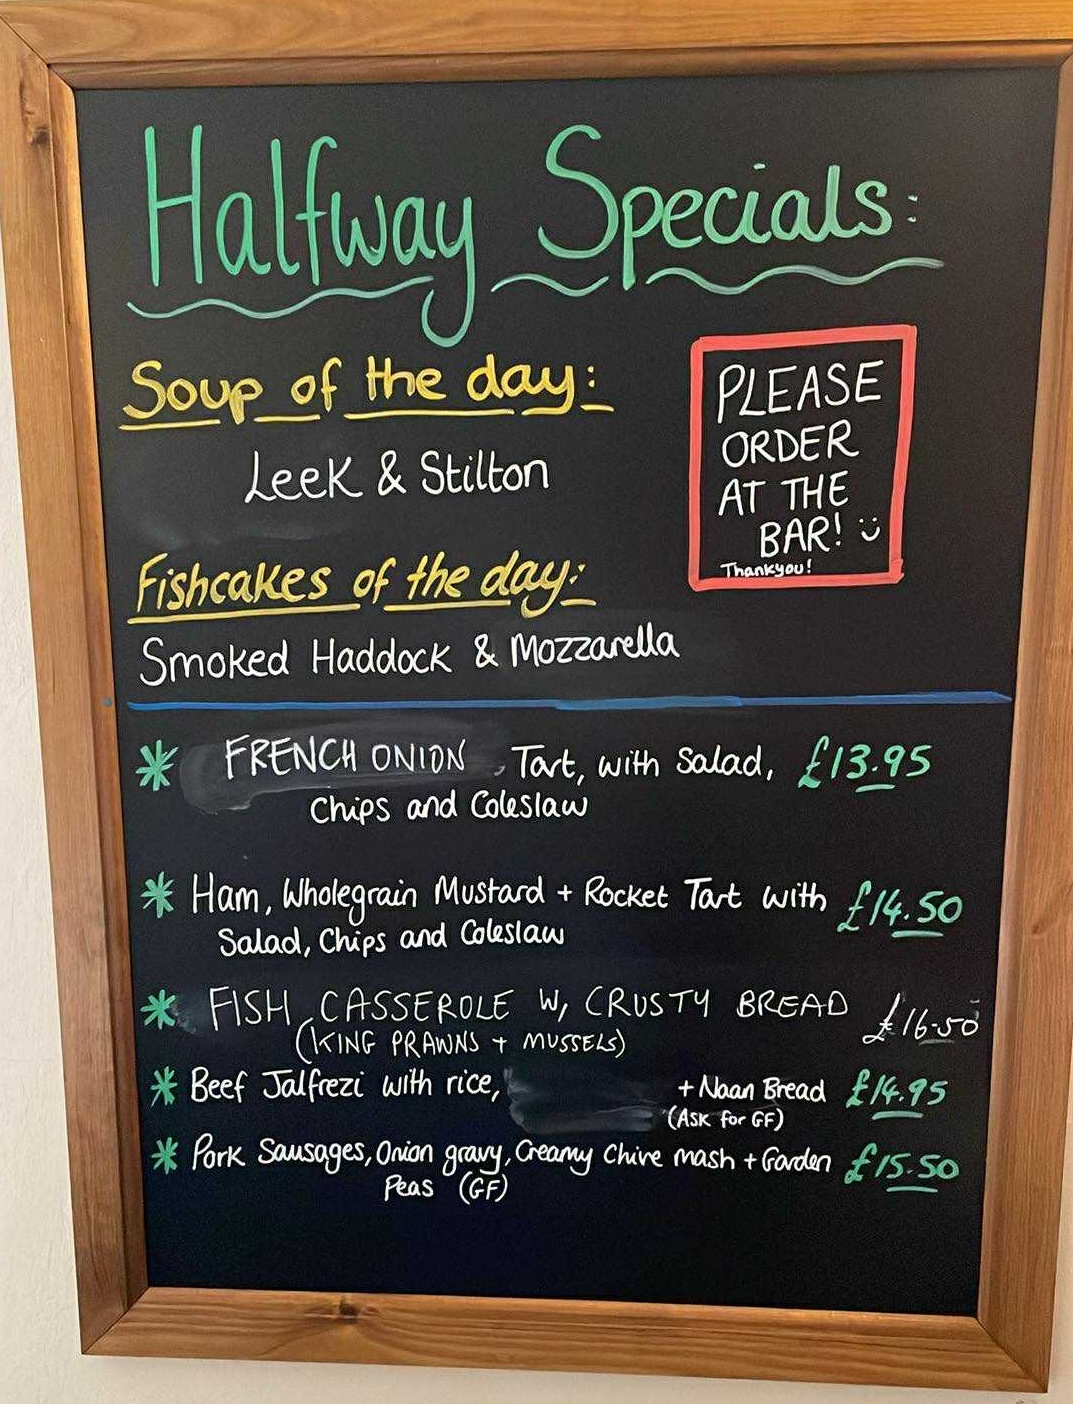 Halfway Specials:
Soup of the day:
Leek & Stilton
PLEASE
ORDER
AT THE
BAR! :)
Thankyou!
Fishcakes of the day:
Smoked Haddock & Mozzarella
* FRENCH ONION Tart, with Salad, £13.95
Chips and Coleslaw
* Ham, Wholegrain Mustard + Rocket Tart with £14.50
Salad, Chips and Coleslaw
* FISH CASSEROLE W/ CRUSTY BREAD £16-50
(KING PRAWNS + MUSSELS)
* Beef Jalfrezi with rice, + Naan Bread £14.95
(Ask for GF)
* Pork Sausages, Onion gravy, Creamy Chive mash + Garden £15.50
Peas (GF)